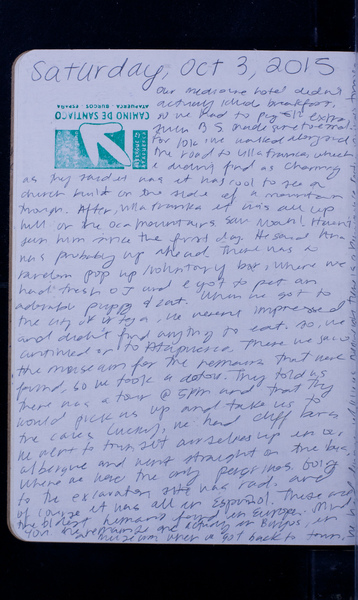 Saturday, Oct 3, 2015
our mediocre hotel didn't
actually include breakfast,
so we had to pay extra,
CAMINO DE SANTIAGO
ATAPUERCA - BURGOS - ESPAÑA
For 10k we walked alongside
the road to Villafranca, which
I didn't find as charming
as the guides was it was cool to see a
church built on the side of a mountain
though. After Villafranka it was all up
hill in the Oca mountains. Saw Noah! Haven't
seen him since the first day. He said
was probably up ahead. There was a
random pop up/voluntary bar, where we
had fresh OJ and I got to pet an
adorable puppy & cat. When we got to
the city of Ortega, we weren't impressed
and didn't find anything to eat. So, we
continued on to Atapuerca. There we saw
the museum for the remains that were
found, so we took a detour. They told us
there was a tour @ 5pm and that they
would pick us up and take us to
the caves. Luckily, we had cliff bars.
We went to set ourselves up in the
albergue and went straight on the bus,
where we were the only peregrinos. Going
to the excavation site was rad, and
of course it was all in Español. These are
the oldest humans found in Europe. Mind
you, the remains are actually in Burgos, in
museum when we got back to town,